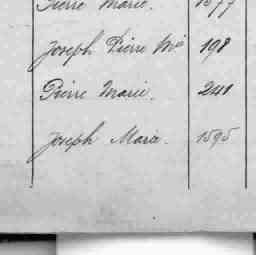 Pierre Marie. 1877
Joseph Pierre Mie 198
Pierre Marie. 241
Joseph Marie. 1595